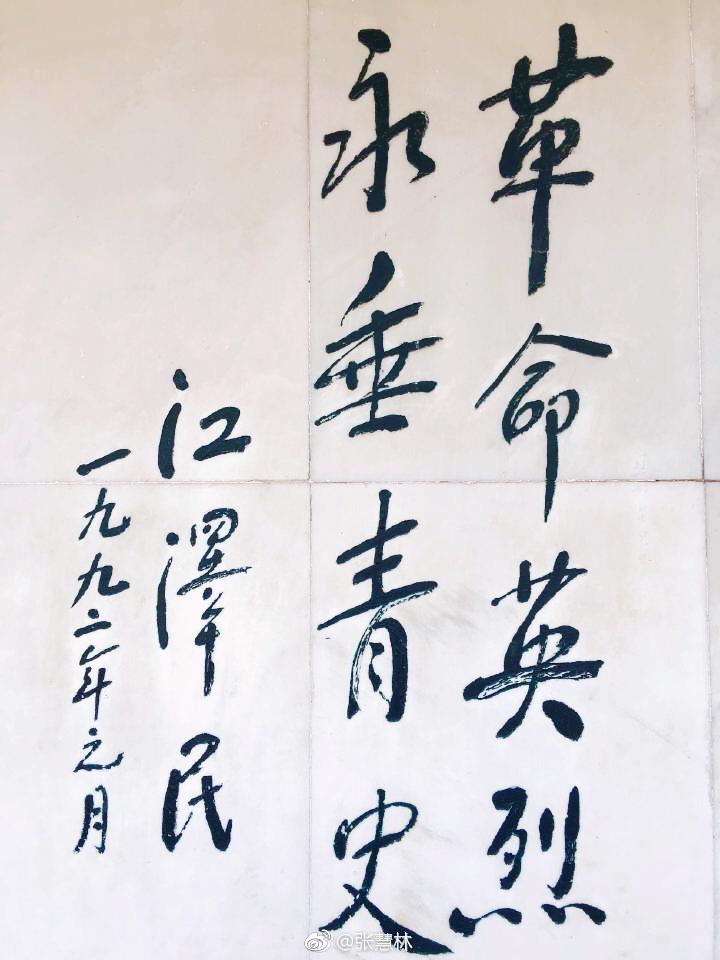 革命英烈
永垂青史
江泽民
一九九二年元月
@张慧林